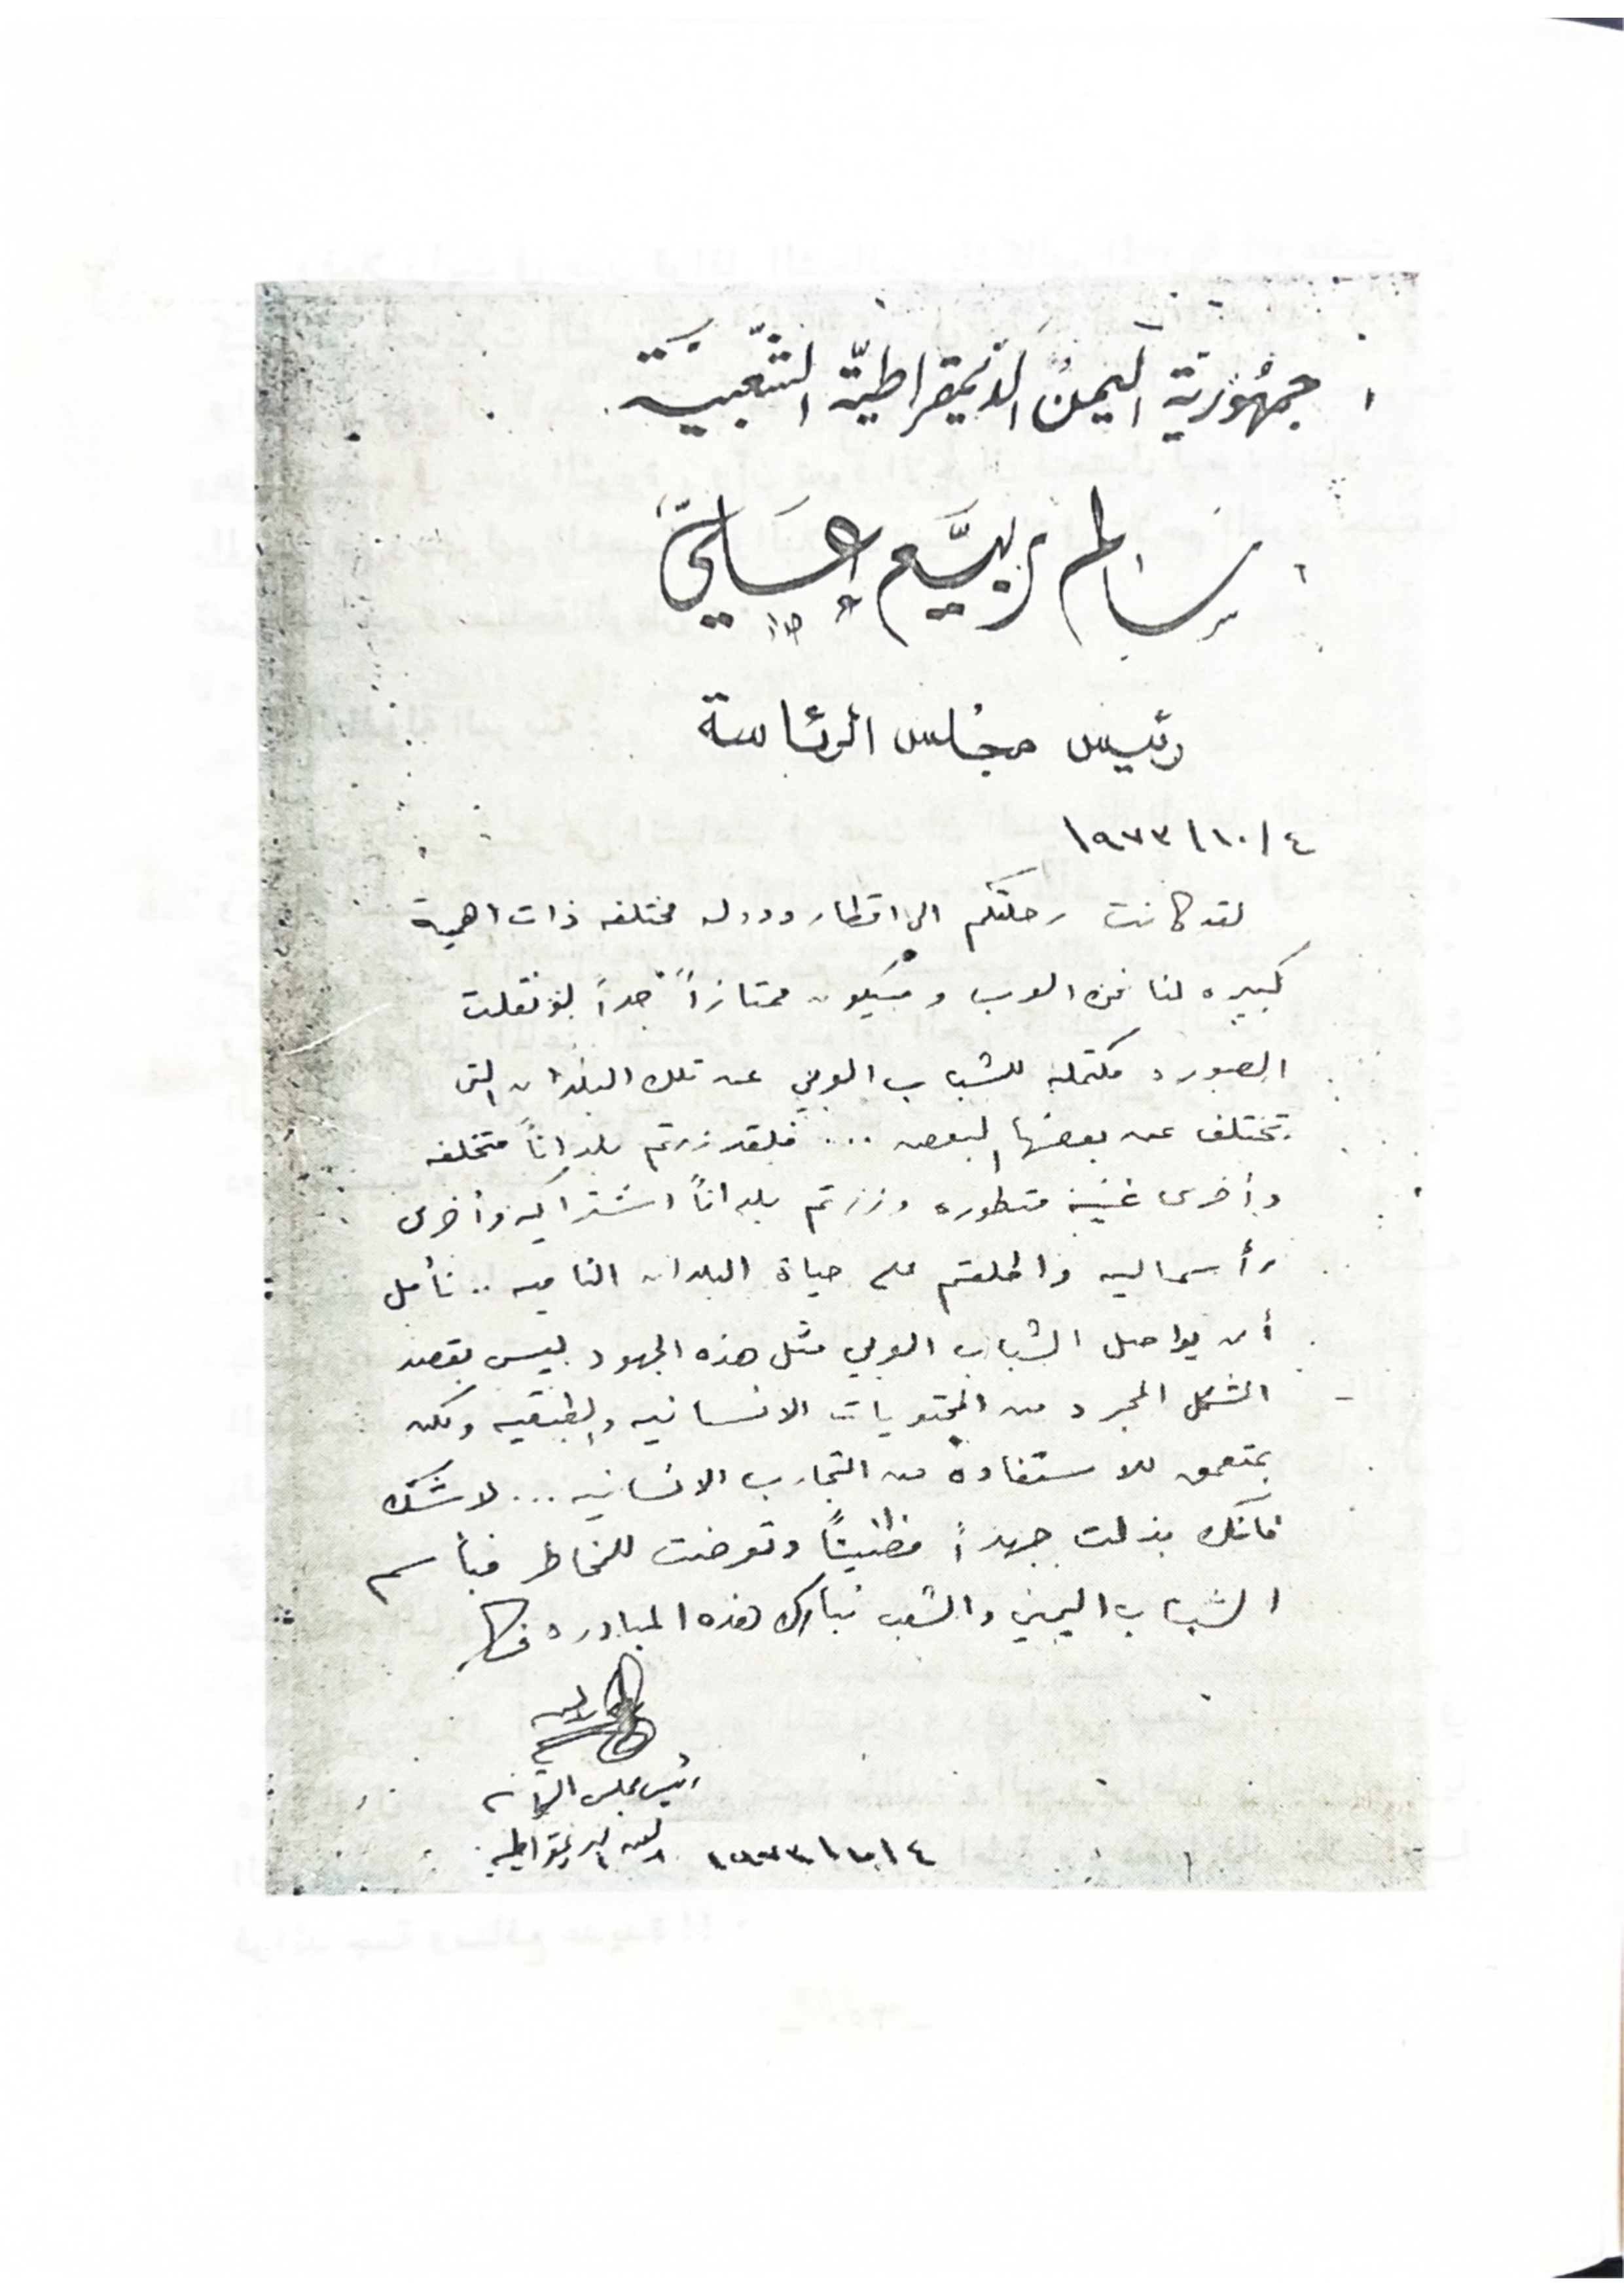 جمهورية اليمن الديمقراطية الشعبية
سالم ربيع علي
رئيس مجلس الرئاسة
٤/١٠/١٩٧٣
لقد كانت رحلتكم الى اقطار ودول مختلفه ذات اهمية
كبيره لنا نحن العرب وسيكون ممتازاً جداً لو نقلت
الصوره مكتمله للشباب العربي عن تلك البلدان التى
تختلف عن بعضها البعض ... فلقد زرتم بلداناً متخلفه
وأخرى غنية متطوره وزرتم بلداناً اشتراكيه وأخرى
رأسماليه واطلعتم على حياة البلدان الناميه .. نأمل
أن يواصل الشباب العربي مثل هذه الجهود ليس بقصد
الشكل المجرد من المحتويات الانسانيه والطبقيه ولكن
بتعمق للاستفادة من التجارب الانسانيه ... لا شك
فانك بذلت جهداً مضنيئاً وتعرضت للمخاطر فبأسم
الشباب اليمني والشعب نبارك هذه المبادره
رئيس مجلس الرئاسه
اليمن الديمقراطيه ٤/١٠/١٩٧٣